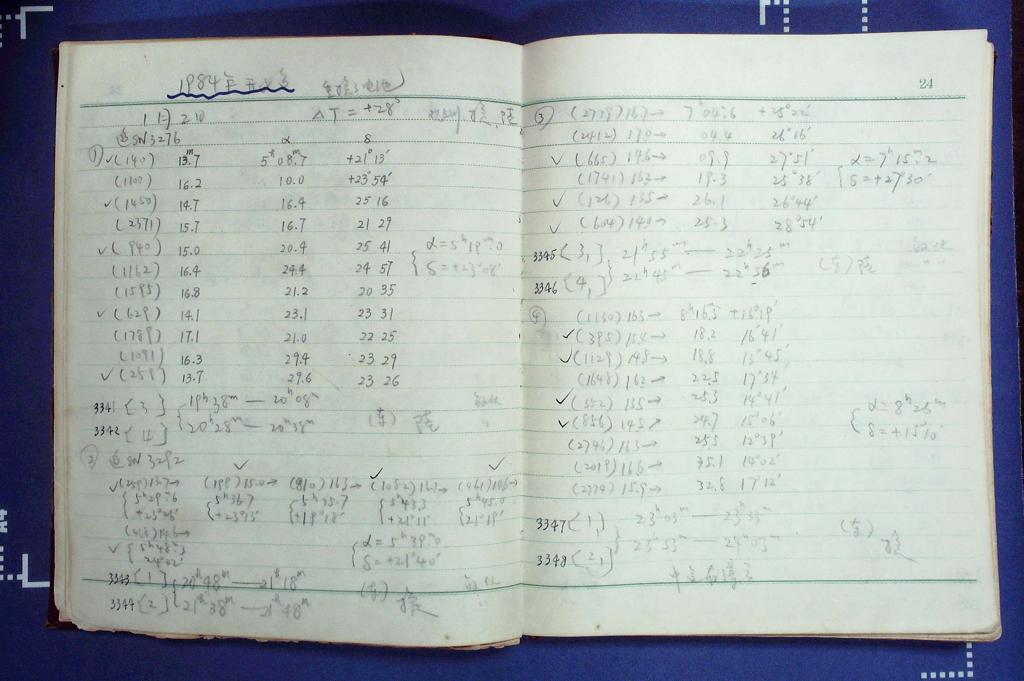 1984年
1月 2日
ΔT = +28ˢ
追 SN 3276
α δ
① ✓(140) 13.7 5ʰ08.ᵐ7 +21°13′
(1100) 16.2 10.0 +23°54′
✓(1450) 14.7 16.4 25 16
(2371) 15.7 16.7 21 29
✓(940) 15.0 20.4 25 41
(1162) 16.4 24.4 24 57
α = 5ʰ19ᵐ.0
δ = +23°08′
(1595) 16.8 21.2 20 35
✓(629) 14.1 23.1 23 31
(1789) 17.1 21.0 22 25
(1091) 16.3 29.4 23 29
✓(259) 13.7 29.6 23 26
3341 [3] 19ʰ38ᵐ — 20ʰ08ᵐ
3342 [4] 20ʰ28ᵐ — 20ʰ38ᵐ
(东) 陆
② 追 SN 3292
✓(259) 13.7→ (199) 15.0→ (810) 16.3 (1082) 16.1→ (461)
5ʰ29.ᵐ6 5ʰ36.7 5ʰ35.7 5ʰ43.3 5ʰ45.0
+23°25′ +23°13′ +19°18′ +21°11′ 21°19′
✓ 5ʰ48.ᵐ3
24°02′
α = 5ʰ39ᵐ.0
δ = +21°40′
3343 [1] 20ʰ48ᵐ — 21ʰ18ᵐ
3344 [2] 21ʰ38ᵐ — 21ʰ48ᵐ
(东)
24
③ (2729) 16.7→ 7ʰ04.ᵐ6 +25°22′
(2412) 17.0→ 04.4 26°16′
✓(665) 14.6→ 09.9 27°51′
(1741) 16.3→ 19.3 25°38′
✓(126) 13.5→ 26.1 26°44′
✓(604) 14.0→ 25.3 28°54′
α = 7ʰ15.ᵐ2
δ = +27°30′
3345 [3,] 21ʰ55ᵐ — 22ʰ25ᵐ
3346 [4,] 22ʰ45ᵐ — 22ʰ56ᵐ
(东) 陆
④ (1130) 16.3→ 8ʰ16.5 +15°19′
✓(395) 15.4→ 18.2 16°41′
✓(1129) 14.8→ 18.8 13°45′
(1648) 16.2→ 22.5 17°34′
✓(352) 13.5→ 25.3 14°41′
✓(856) 14.5→ 24.7 15°06′
(2746) 16.3→ 25.5 12°39′
(2019) 16.6→ 35.1 14°02′
(2774) 15.9→ 32.8 17°12′
α = 8ʰ25ᵐ
δ = +15°10′
3347 [1,] 23ʰ03ᵐ — 23ʰ33ᵐ
3348 [2,] 23ʰ53ᵐ — 24ʰ03ᵐ
(东)